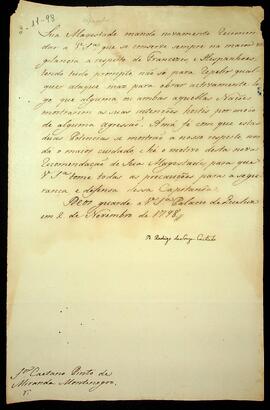 2-11-98
Sua Magestade manda novamente recomen-
dar a V. S.ª que se conserve sempre na maior vi-
gilancia a respeito de Francezes, e Hespanhoes,
tendo tudo prompto não só para repelir qual-
quer ataque mas para obrar activamente lo-
go que alguma ou ambas aquellas Nações
mostrarem as suas intenções hostis por meio
de alguma agressão. A má fé com que estas
duas Potencias se mostrão a nosso respeito
o maior cuidado, he o motivo desta nova
recomendação de Sua Magestade, para que
V. S.ª tome todas as precauções para a segu-
rança e defensa dessa Capitania.
Deos guarde a V. S.ª Palacio de Queluz
em 2 de Novembro de 1798//
D. Rodrigo de Souza Coutinho
S.r Caetano Pinto de
Miranda Montenegro.